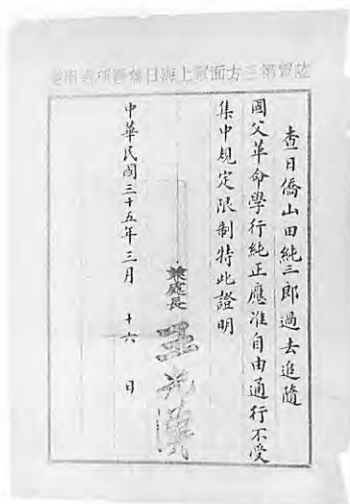 陸軍第三方面軍上海日僑管理處用箋
查日僑山田純三郎過去追隨
國父革命學行純正應准自由通行不受
集中規定限制特此證明
兼處長
王光漢
中華民國三十五年三月 十六 日